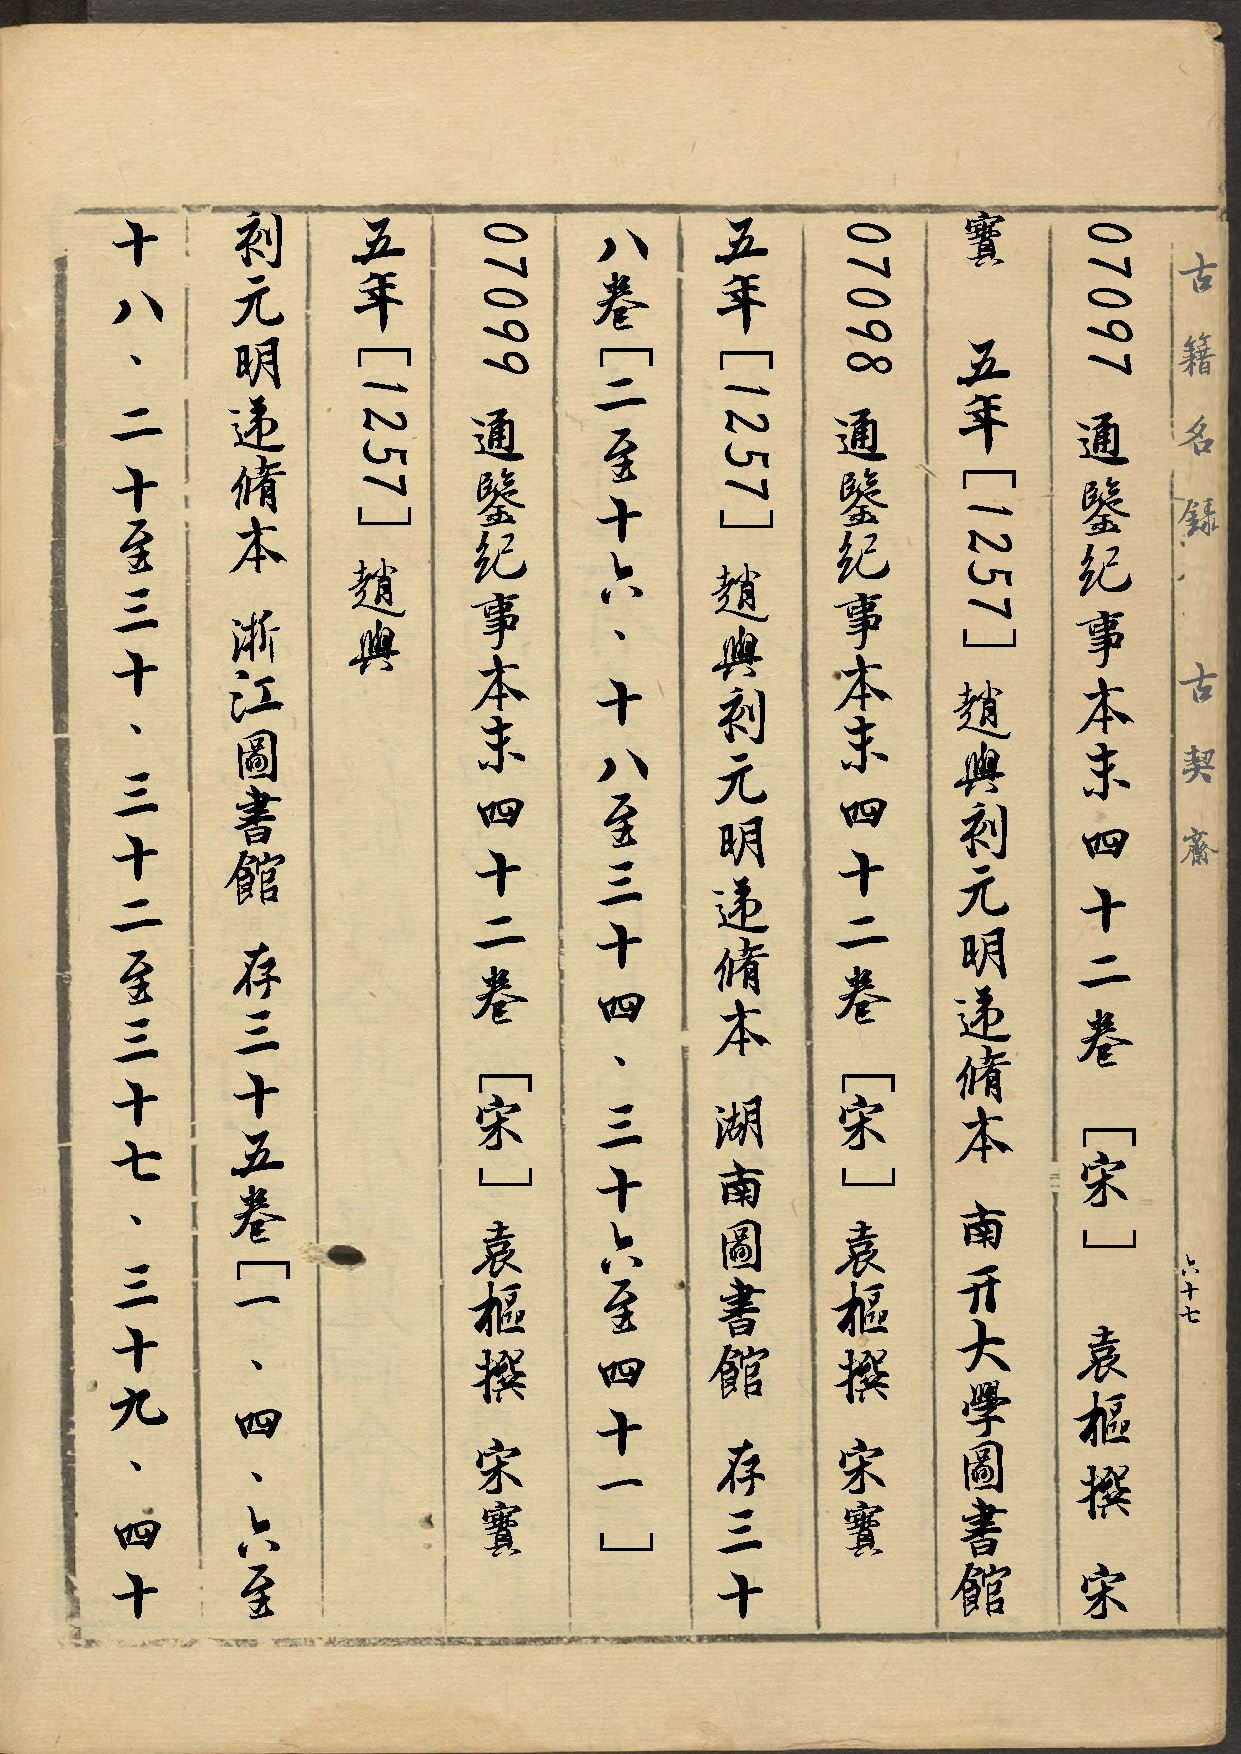 古籍名録 古契齋 六十七
07097 通鑒纪事本末四十二卷 [宋] 袁樞撰 宋
寶 五年[1257]趙與刻元明递脩本 南开大學圖書館
07098 通鑒纪事本末四十二卷 [宋] 袁樞撰 宋寶
五年[1257]趙與刻元明递脩本 湖南圖書館 存三十
八卷[二至十六、十八至三十四、三十六至四十一]
07099 通鑒纪事本末四十二卷 [宋] 袁樞撰 宋寶
五年[1257]趙與
刻元明递脩本 浙江圖書館 存三十五卷[一、四、六至
十八、二十至三十、三十二至三十七、三十九、四十